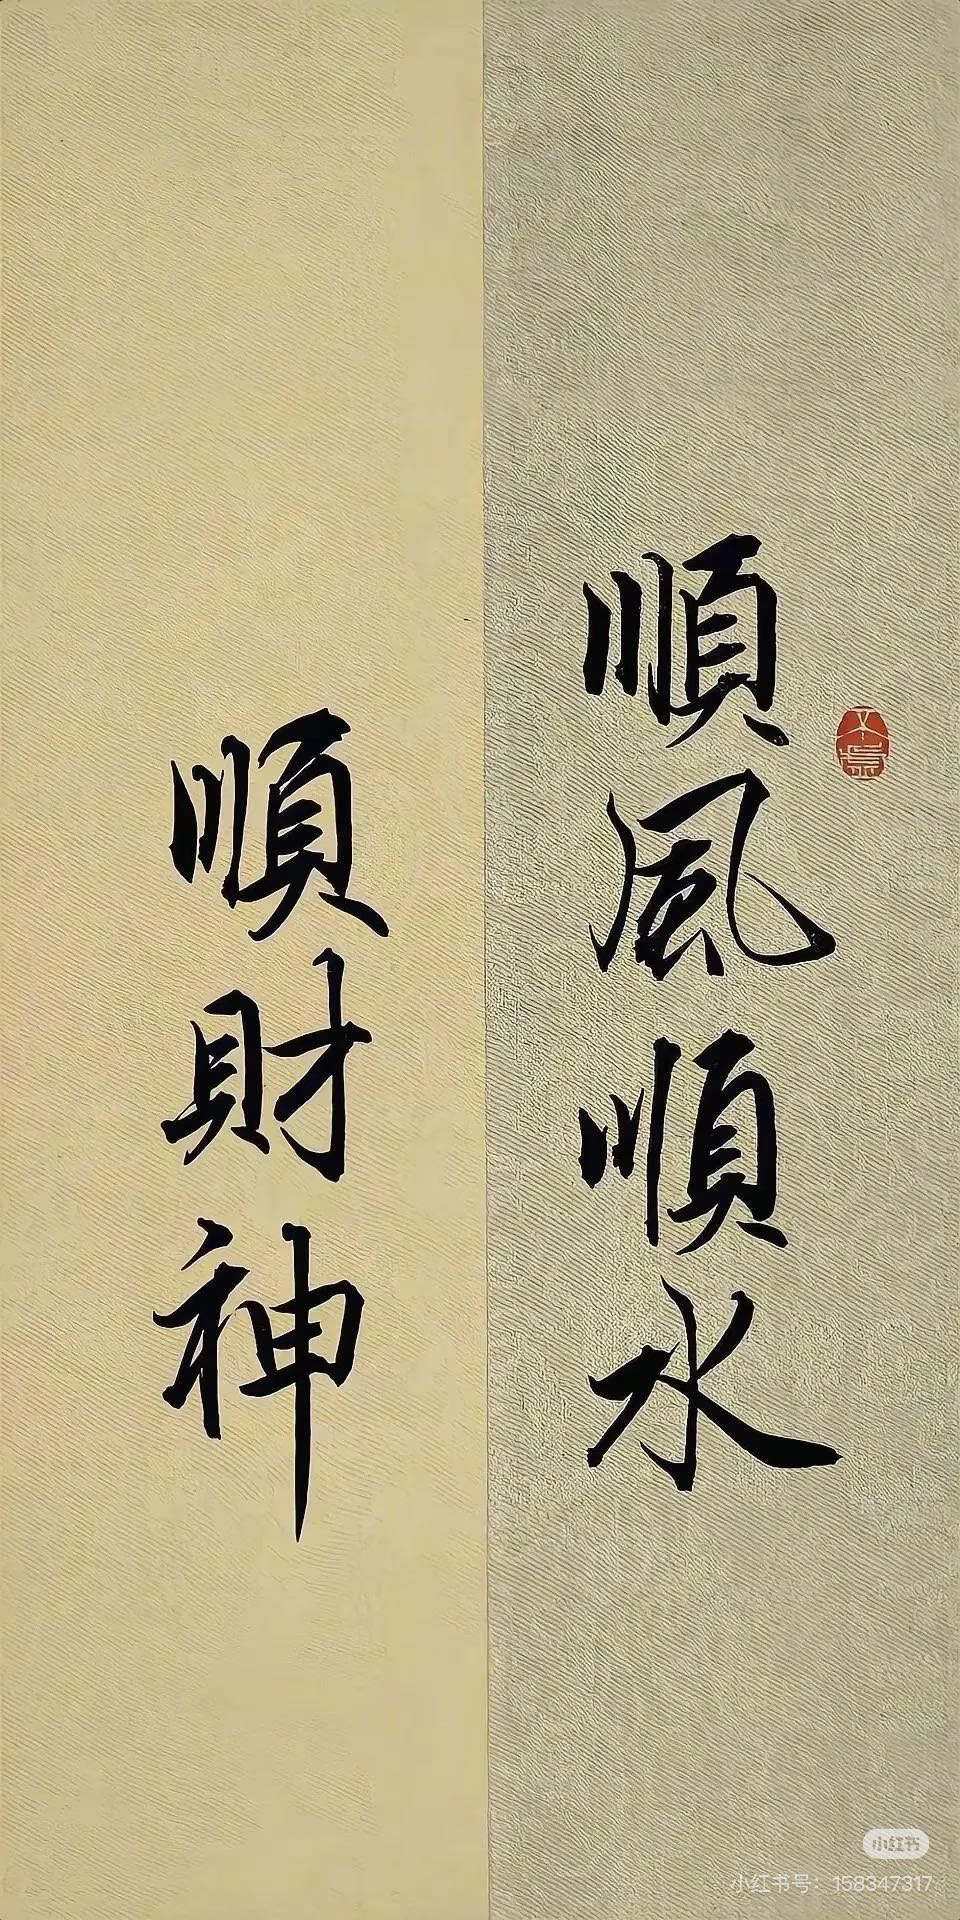 順風順水
順財神
小红书
小红书号：158347317